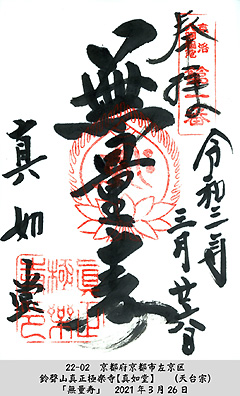 奉拝
無量寿
令和三年
三月廿六日
真如堂
22-02　京都府京都市左京区
鈴聲山真正極楽寺【真如堂】　（天台宗）
「無量寿」　2021年3月26日